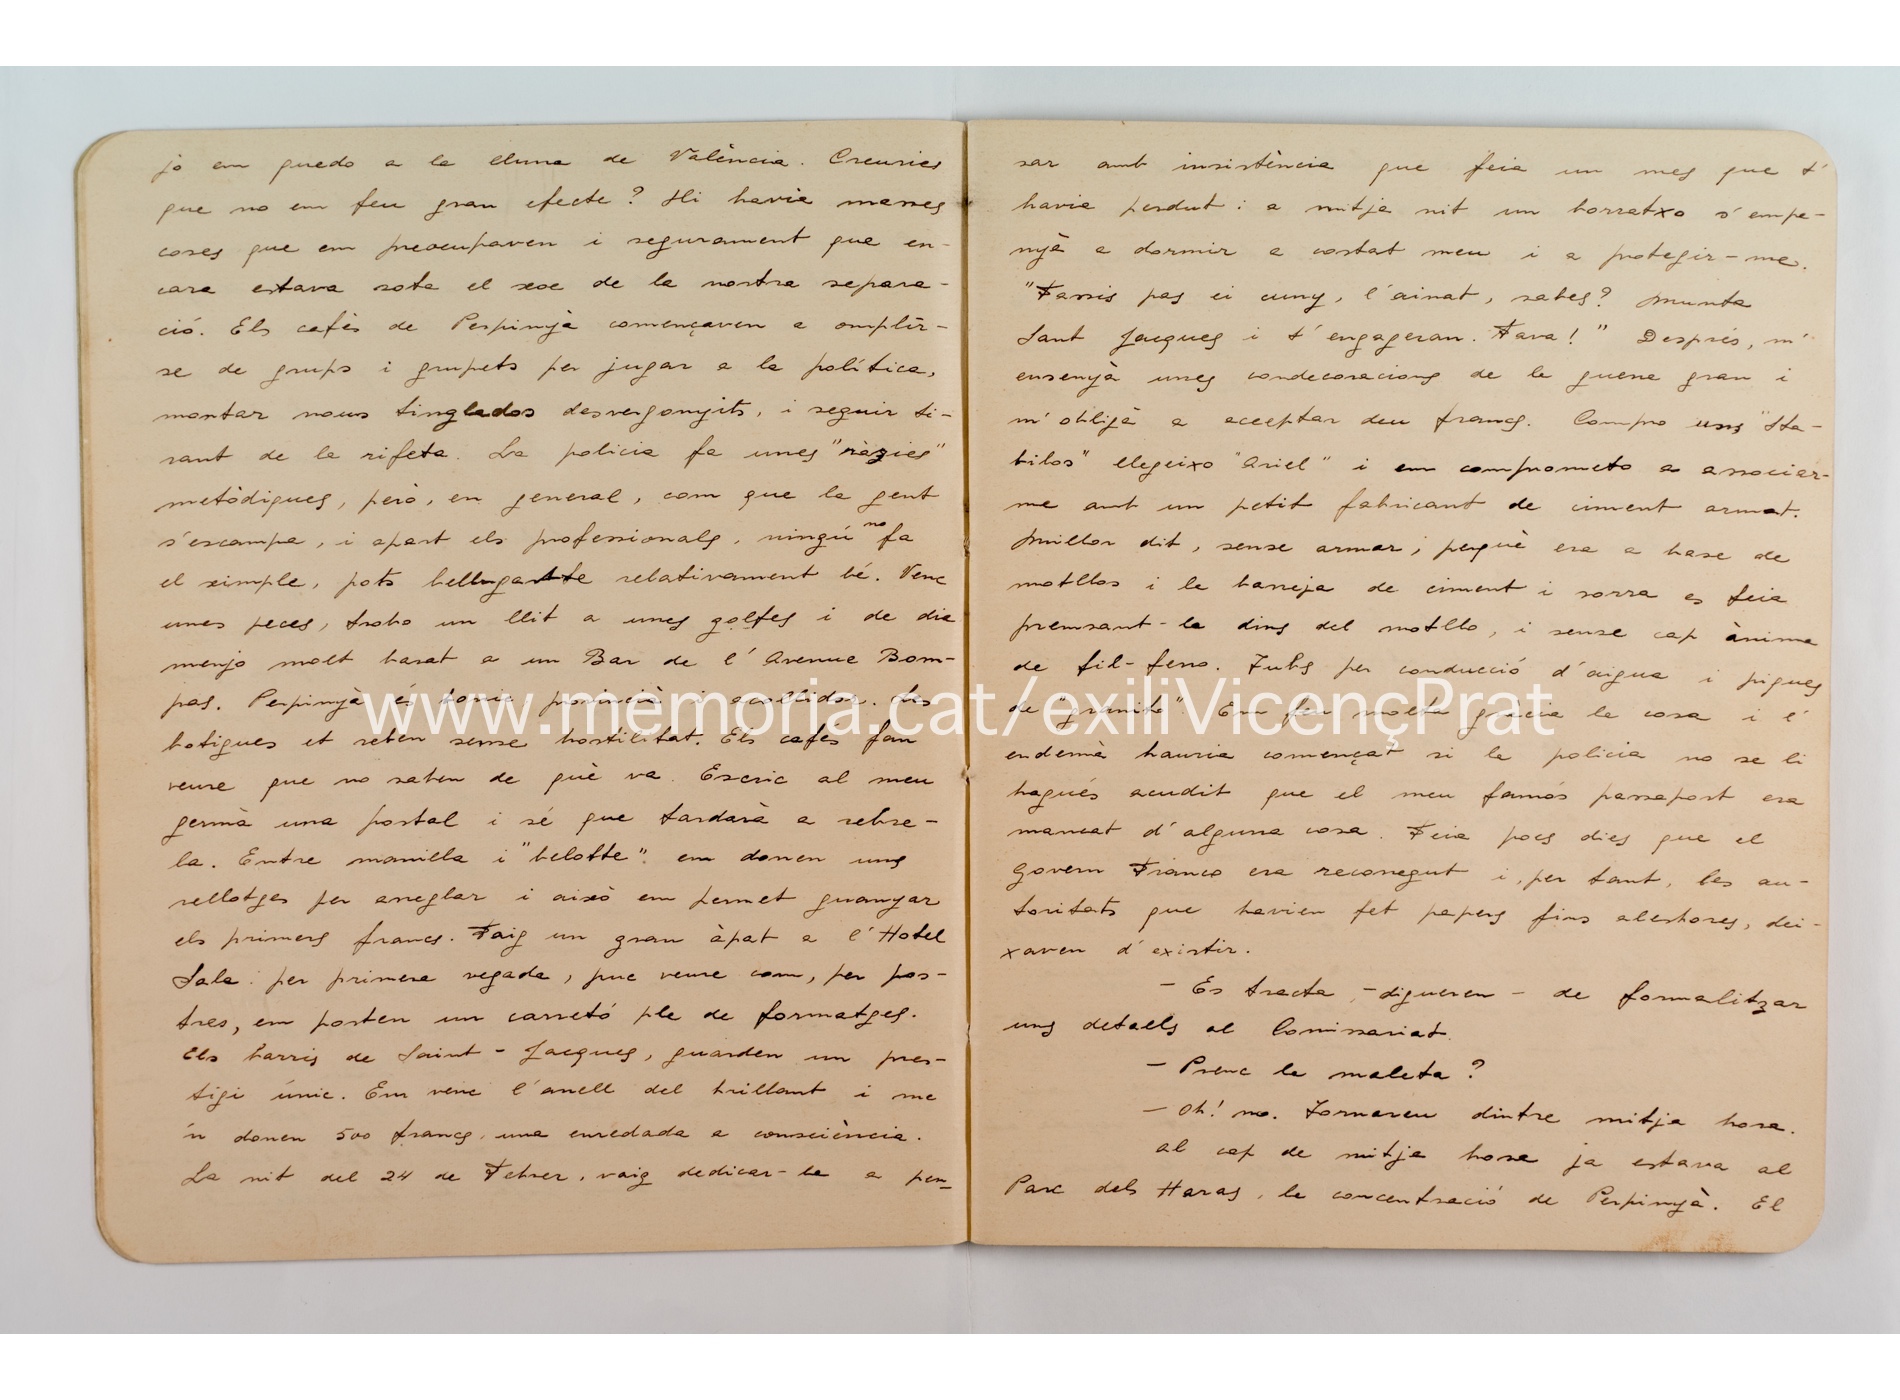 jo em quedo a la lluna de València. Creuries
que no em feu gran efecte? Hi havia masses
coses que em preocupaven i segurament que en-
cara estava sota el xoc de la nostra separa-
ció. Els cafès de Perpinyà començaven a omplir-
se de grups i grupets per jugar a la política,
montar nous tinglados desvergonyits, i seguir ti-
rant de la rifeta. La policia fa unes "ràzies"
metòdiques, però, en general, com que la gent
s'escampa, i apart els professionals, ningú no fa
el ximple, pots bellugar-te relativament bé. Venc
unes peces, trobo un llit a unes golfes i de dia
menjo molt barat a un Bar de l'Avenue Bom-
pas. Perpinyà és bonic, provincià i acollidor. Les
botigues et reben sense hostilitat. Els cafès fan
veure que no saben de què va. Escric al meu
germà una postal i sé que tardarà a rebre-
la. Entre manilla i "belotte" em donen uns
rellotges per arreglar i això em permet guanyar
els primers francs. Faig un gran àpat a l'Hotel
Sala: per primera vegada, puc veure com, per pos-
tres, em porten un carretó ple de formatges.
Els barris de Saint-Jacques, guarden un pres-
tigi únic. Em venc l'anell del brillant i me
'n donen 500 francs, una enredada a consciència.
La nit del 24 de Febrer, vaig dedicar-la a pen-
sar amb insistència que feia un mes que t'
havia perdut: a mitja nit un borratxo s'empe-
nyà a dormir a costat meu i a protegir-me.
"Fassis pas ei cuny, l'ainat, sabes? Munta
Sant Jacques i t'engageran. Fava!" Després, m'
ensenyà unes condecoracions de la guerra gran i
m'obligà a acceptar deu francs. Compro uns "Sta-
bilos" elegeixo "Ariel" i em comprometo a associar-
me amb un petit fabricant de ciment armat.
Millor dit, sense armar, perquè era a base de
motllos i la barreja de ciment i sorra es feia
premsant-la dins del motllo, i sense cap ànima
de fil-ferro. Tubs per conducció d'aigua i piques
de "granito". Em feu molta gràcia la cosa i l'
endemà hauria començat si la policia no se li
hagués acudit que el meu famós passaport era
mancat d'alguna cosa. Feia pocs dies que el
govern Franco era reconegut i, per tant, les au-
toritats que havien fet papers fins aleshores, dei-
xaven d'existir.
- Es tracta, -digueren - de formalitzar
uns detalls al Comissariat.
- Prenc la maleta?
- Oh! no. Tornareu dintre mitja hora.
Al cap de mitja hora ja estava al
Parc dels Haras, la concentració de Perpinyà. El
www.memoria.cat/exiliVicençPrat